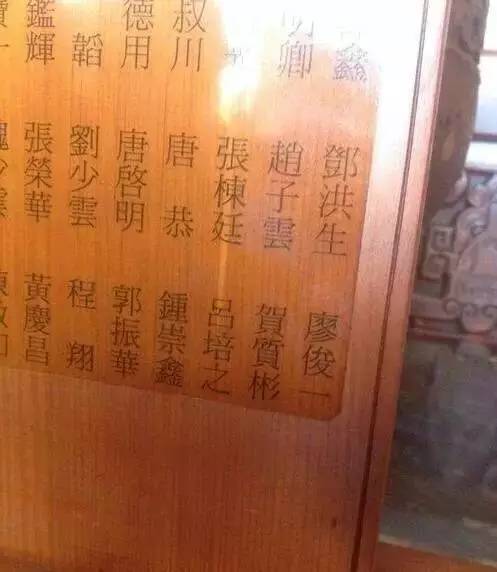 鑫 鄧洪生 廖俊一
卿 趙子雲 賀質彬
張棟廷 呂培之
叔川 唐恭 鍾崇鑫
德用 唐啓明 郭振華
韜 劉少雲 程翔
鑑輝 張榮華 黃慶昌